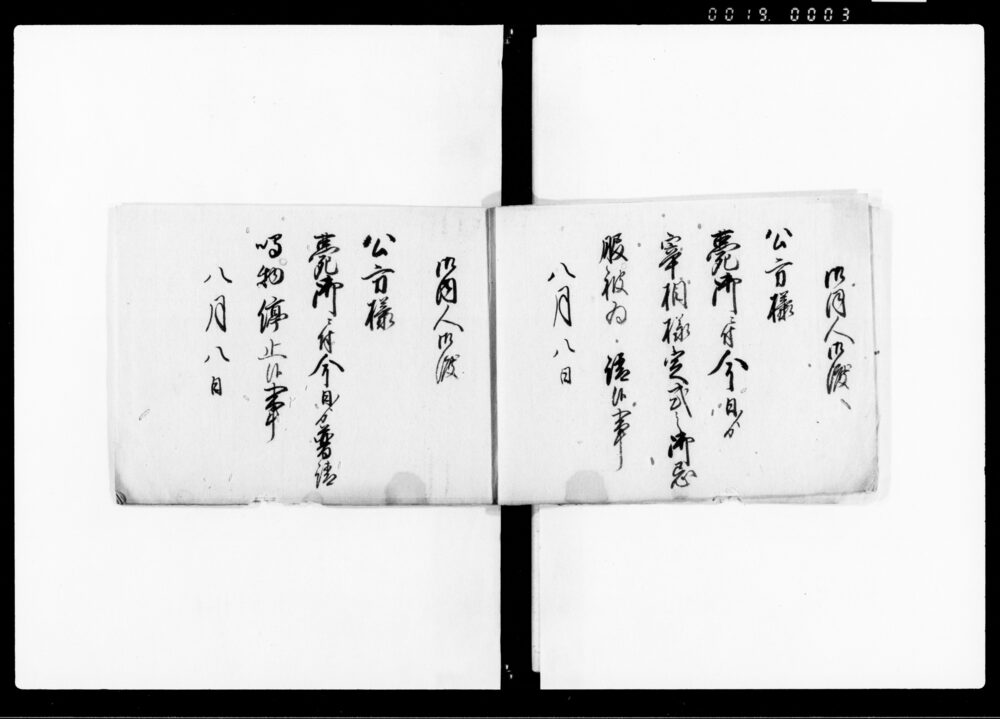 0019 0003
御同人御渡
公方様
薨御ニ付今日ゟ
宰相様定式之御忌
服被為 請候事
八月八日
御同人御渡
公方様
薨御ニ付今日ゟ普請
鳴物停止候事
八月八日